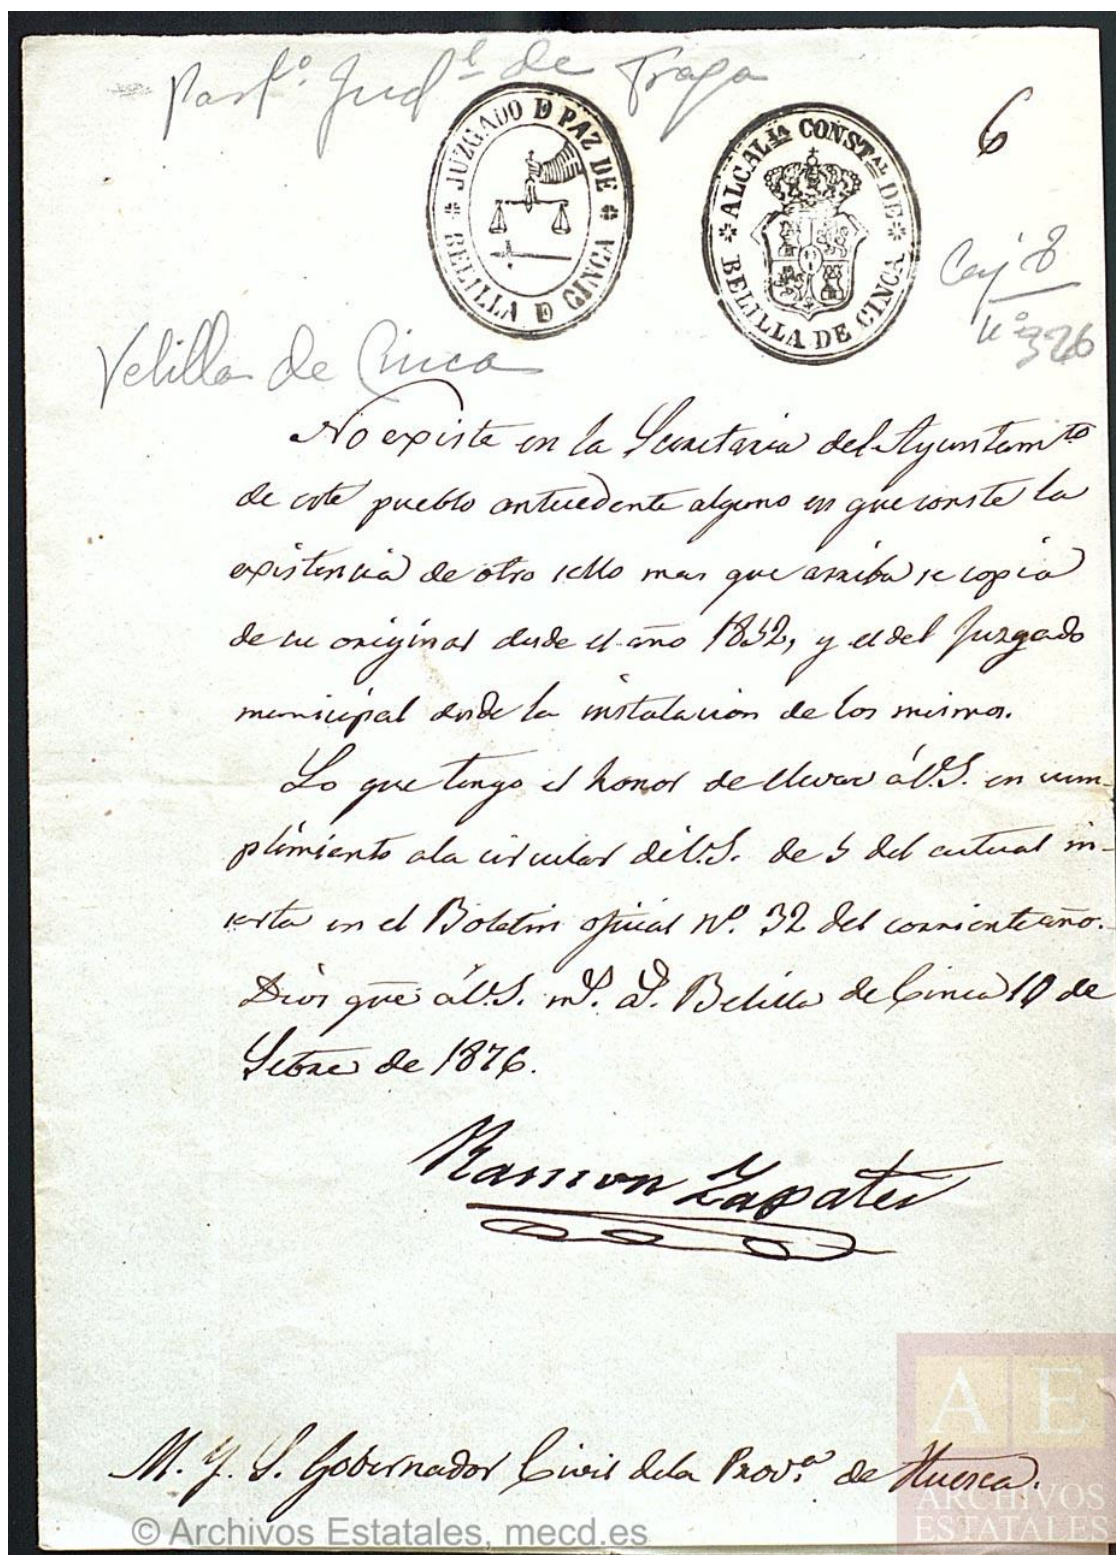 Part.º Jud.l de Fraga
JUZGADO D PAZ DE
BELILLA D CINCA
ALCALIA CONSTAL DE
BELILLA DE CINCA
6
Caj 8
nº 326
Velilla de Cinca
No existe en la Secretaria del Ayuntamto
de este pueblo antecedente alguno en que conste la
existencia de otro sello mas que arriba se copia
de su original desde el año 1852, y el del Juzgado
municipal desde la instalacion de los mismos.
Lo que tengo el honor de elevar á V.S. en cum-
plimiento a la circular de V.S. de 5 del actual in-
serta en el Boletin oficial Nº. 32 del corriente año.
Dios gue á V.S. ms. as. Belilla de Cinca 10 de
Setbre de 1876.
Ramon Zapater
M. Y. S. Gobernador Civil de la Prov.a de Huesca.
AE
ARCHIVOS
ESTATALES
© Archivos Estatales, mecd.es